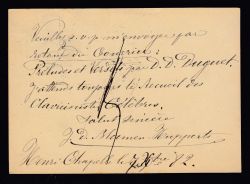 Veuillez s.v.p. m'envoyer par
Retour du Courrier :
Préludes et Versets par D. D. Duguet.
J'attends toujours le Recueil des
Clavecinistes Célèbres.
Salut sincère
Henri Chapelle le 7 72.